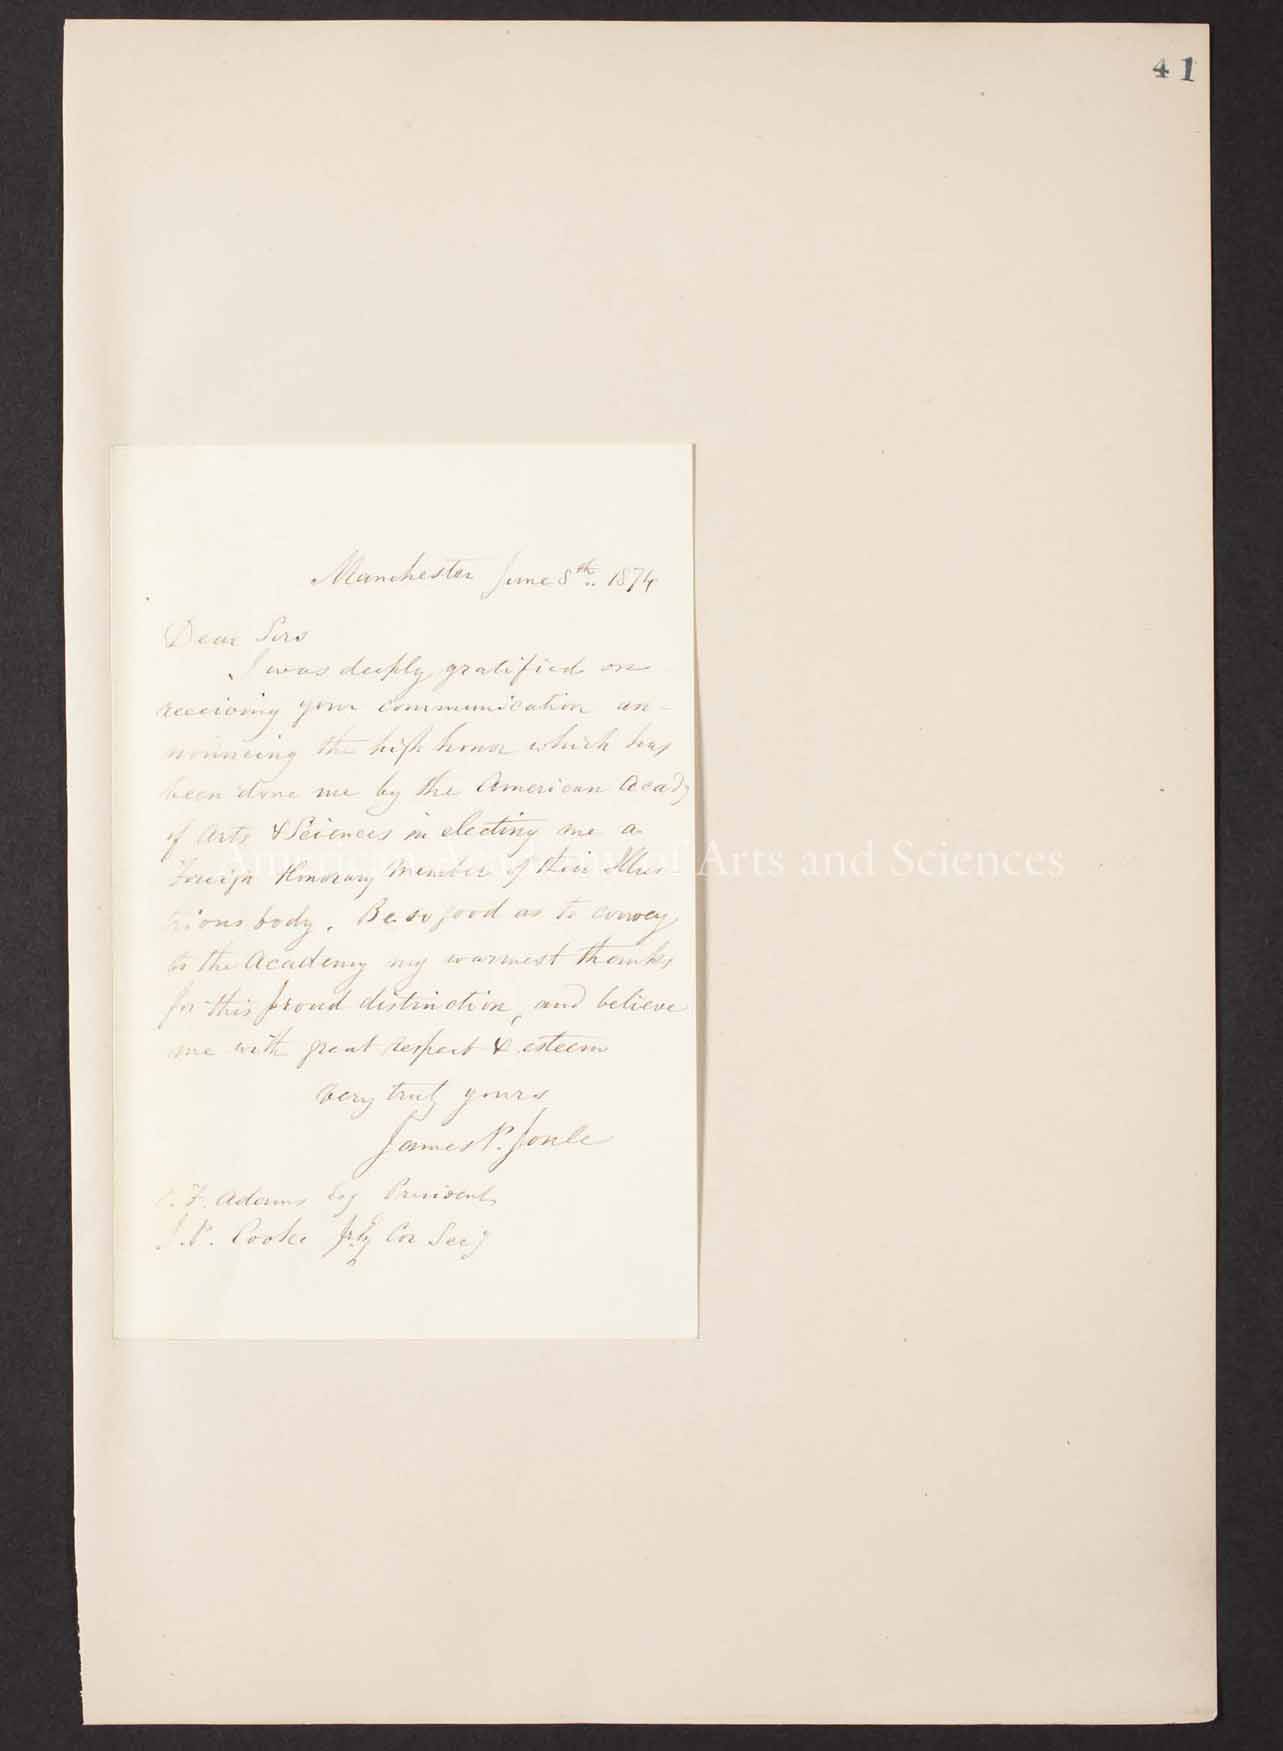 41
Manchester June 8th 1874
Dear Sirs
I was deeply gratified on
receiving your communication an-
nouncing the high honor which has
been done me by the American Acady
of Arts & Sciences in electing me a
American Academy of Arts and Sciences
Foreign Honorary Member of their Illus
trious body. Be so good as to convey
to the Academy my warmest thanks
for this proud distinction, and believe
me with great respect & esteem
very truly yours
James P. Joule
C. F. Adams Esq President
J. P. Cooke Jr Esq Cor Secy